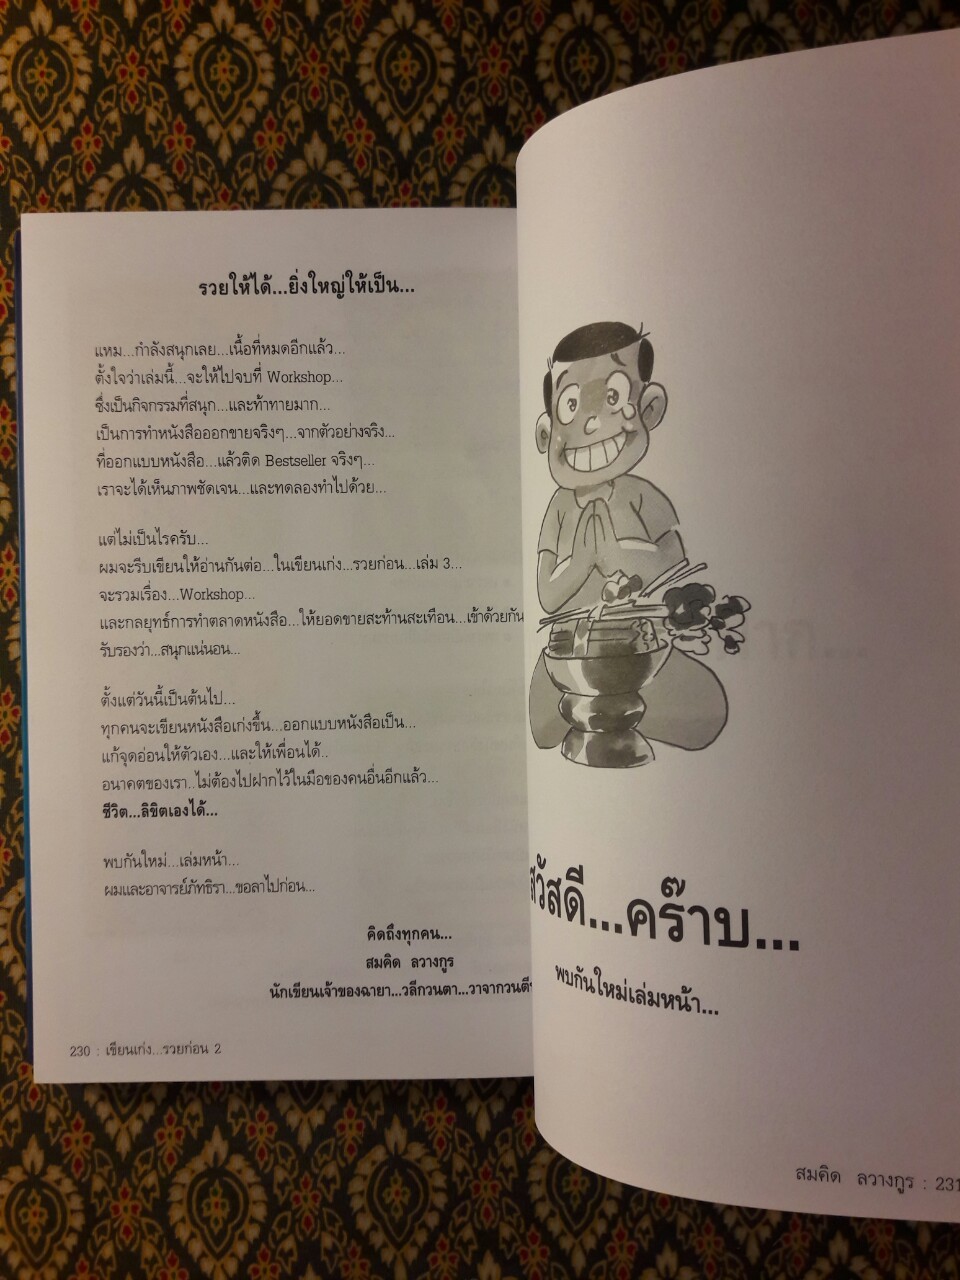 รวยให้ได้...ยิ่งใหญ่ให้เป็น...
แหม...กำลังสนุกเลย...เนื้อที่หมดอีกแล้ว...
ตั้งใจว่าเล่มนี้...จะให้ไปจบที่ Workshop...
ซึ่งเป็นกิจกรรมที่สนุก...และท้าทายมาก...
เป็นการทำหนังสือออกขายจริงๆ...จากตัวอย่างจริง...
ที่ออกแบบหนังสือ...แล้วติด Bestseller จริงๆ...
เราจะได้เห็นภาพชัดเจน...และทดลองทำไปด้วย...
แต่ไม่เป็นไรครับ...
ผมจะรีบเขียนให้อ่านกันต่อ...ในเขียนเก่ง...รวยก่อน...เล่ม 3...
จะรวมเรื่อง...Workshop...
และกลยุทธ์การทำตลาดหนังสือ...ให้ยอดขายสะท้านสะเทือน...เข้าด้วยกัน
รับรองว่า...สนุกแน่นอน...
ตั้งแต่วันนี้เป็นต้นไป...
ทุกคนจะเขียนหนังสือเก่งขึ้น...ออกแบบหนังสือเป็น...
แก้จุดอ่อนให้ตัวเอง...และให้เพื่อนได้..
อนาคตของเรา..ไม่ต้องไปฝากไว้ในมือของคนอื่นอีกแล้ว...
ชีวิต...ลิขิตเองได้...
พบกันใหม่...เล่มหน้า...
ผมและอาจารย์ภัทธิรา...ขอลาไปก่อน...
คิดถึงทุกคน...
สมคิด ลวางกูร
นักเขียนเจ้าของฉายา...วลีกวนตา...วาจากวนตี
230 : เขียนเก่ง...รวยก่อน 2
สวัสดี...คร๊าบ...
พบกันใหม่เล่มหน้า...
สมคิด ลวางกูร : 231